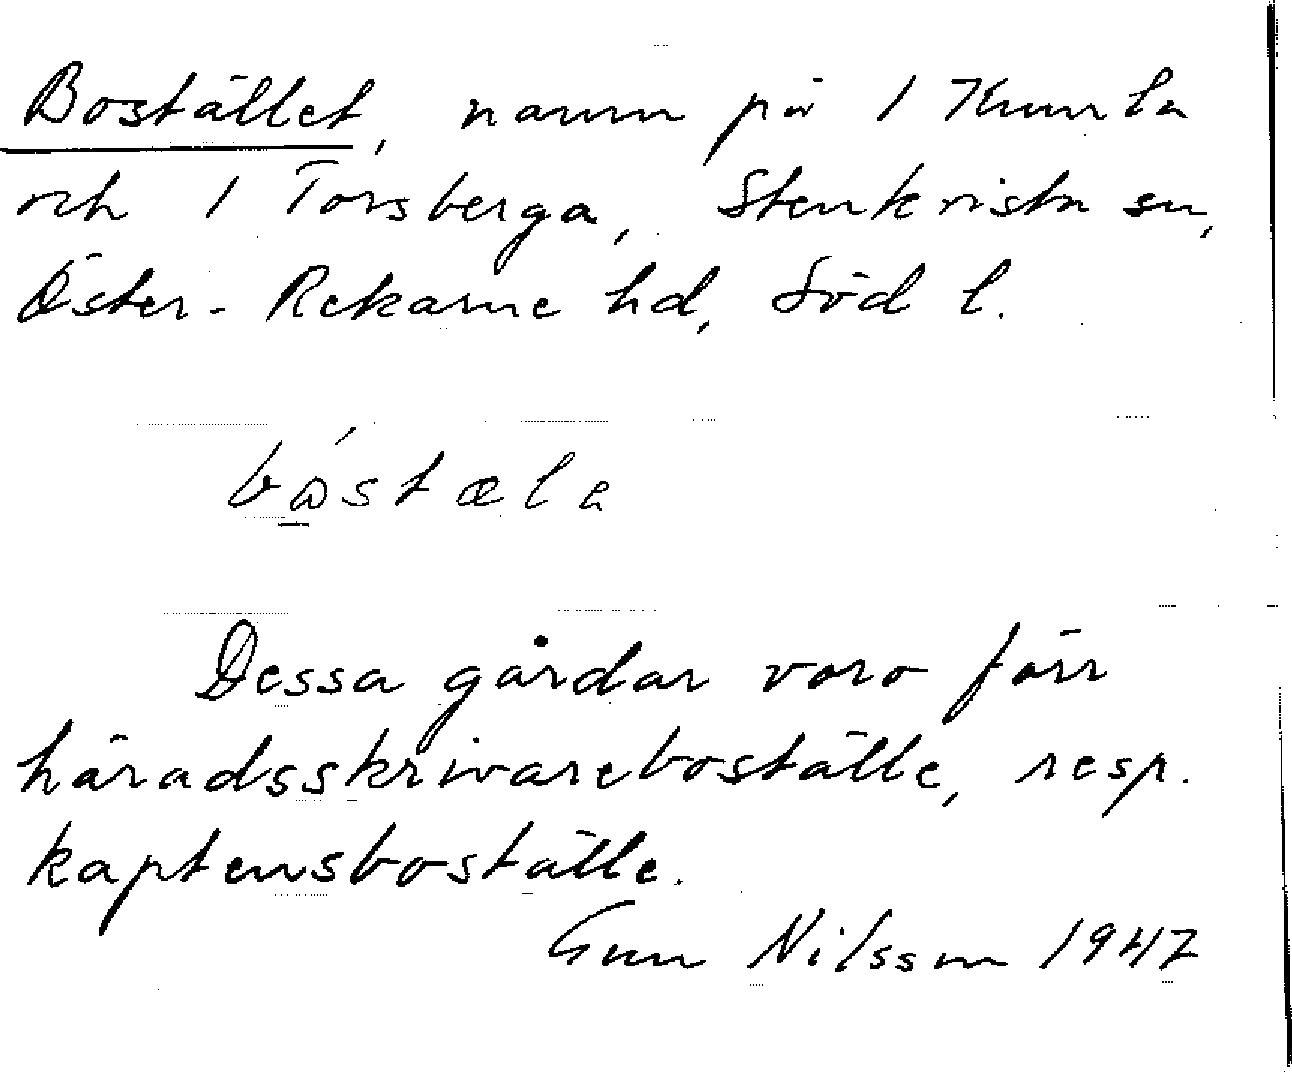 Bostället, namn på 1 Kumla
och 1 Torsberga, Stenkvista sn,
Öster-Rekarne hd, Söd l.
Dessa gårdar voro förr
häradsskrivareboställe, resp.
kaptensboställe.
Gun Nilsson 1947